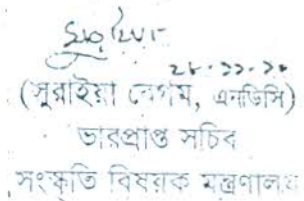 ২৮.১১.১৮
(সুরাইয়া বেগম, এনডিসি)
ভারপ্রাপ্ত সচিব
সংস্কৃতি বিষয়ক মন্ত্রণালয়